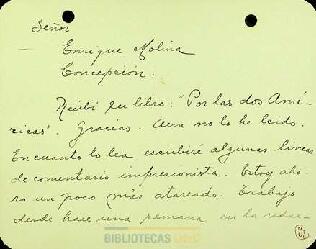 Señor
Enrique Molina
Concepción.
Recibí su libro: "Por las dos Amé-
ricas". Gracias. Aun no lo he leído.
En cuanto lo lea escribiré algunas líneas
de comentario impresionista. Estoy aho-
ra un poco más atareado. Trabajo
desde hace una semana en la redac-
BIBLIOTECAS